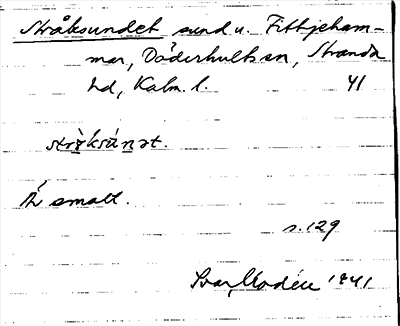 Stråksundet sund u. Fittjeham-
mar, Döderhults sn, Stranda
hd, Kalm. l. 41
stråksúnət.
Ä smalt.
s. 129
Ivar Modéer 1941